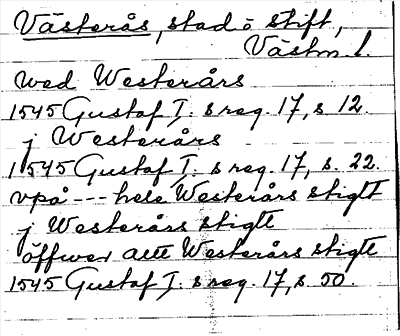 Västerås, stad o stift,
Västm l.
wed Westerårs
1545 Gustaf I. s reg. 17, s 12.
j Westerårs
1545 Gustaf I. s reg. 17, s. 22.
vpå --- hele Westerårs stigtt
j Westerårs stigtt
öffwer altt Westerårs stigtt
1545 Gustaf I. s reg. 17, s. 50.